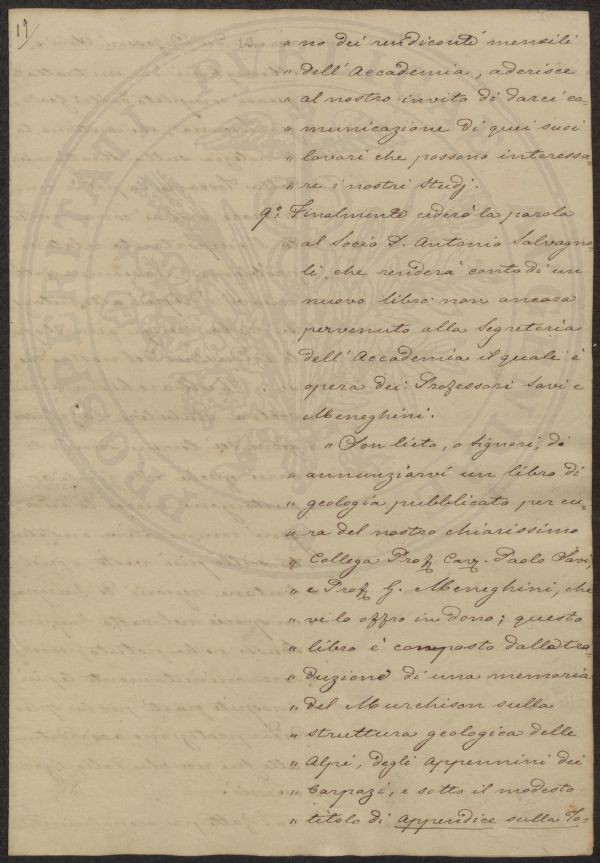 19
" no dei rendiconti mensili
" dell'Accademia, aderisce
" al nostro invito di darci co-
" municazione di quei suoi
" lavori che possono interessa-
" re i nostri studj.
9.° Finalmente cederò la parola
al Socio D. Antonio Salvagno-
li, che renderà conto di un
nuovo libro non ancora
pervenuto alla Segreteria
dell'Accademia il quale è
opera dei Professori Savi e
Meneghini.
" Son lieto, o Signori, di
" annunziarvi un libro di
" geologia pubblicato per cu-
" ra del nostro chiarissimo
" Collega Prof. Cav. Paolo Savi,
" e Prof. G. Meneghini, che
" vi lo offro in dono; questo
" libro è composto dalla tra-
" duzione di una memoria
" del Murchison sulla
" struttura geologica delle
" Alpi, degli Appennini dei
" Carpazi, e sotto il modesto
" titolo di Appendice sulla To-